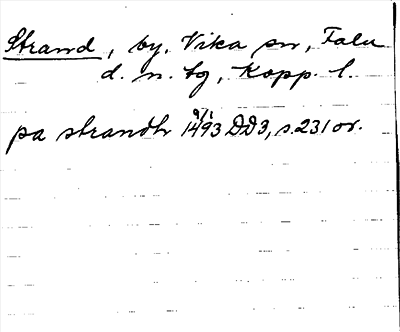 Strand, by, Vika sn, Falu
d. n. tg, Kopp. l.
9/1
pa strandh 1493 DD3, s. 231 or.